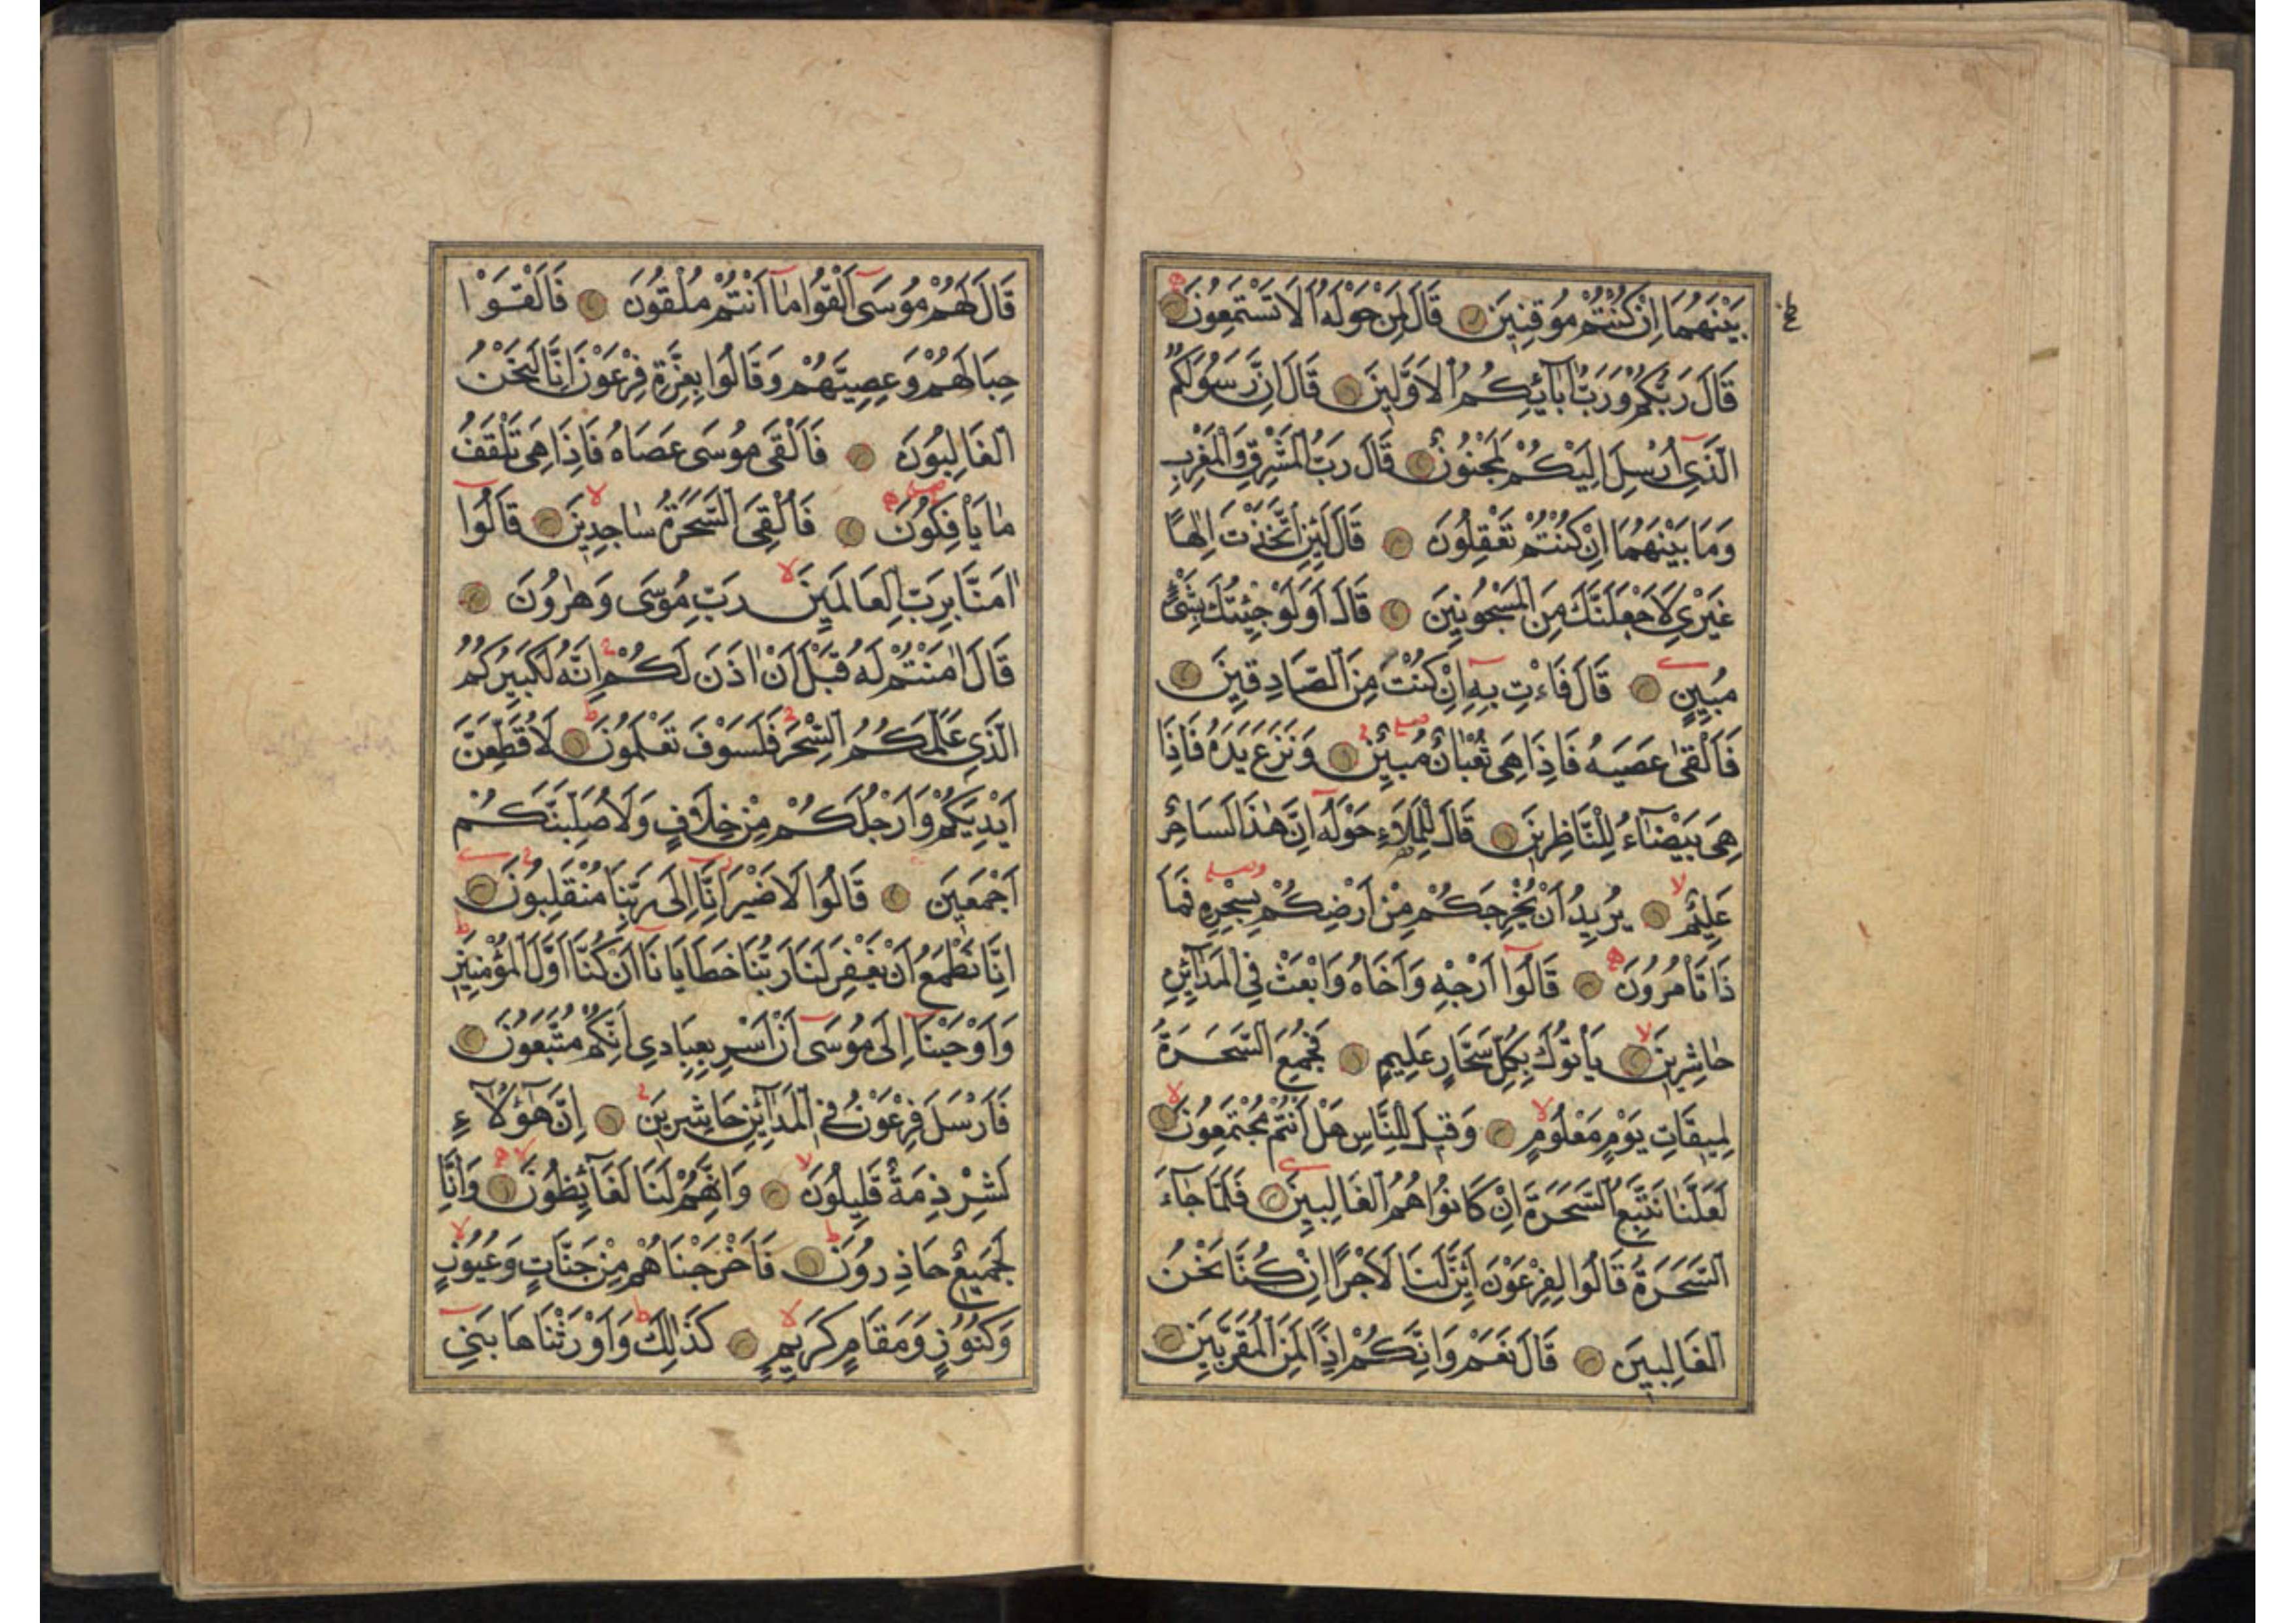 بَيْنَهُمَا اِنْ كُنْتُمْ مُوقِنِينَ قَالَ لِمَنْ حَوْلَهُ اَلَا تَسْتَمِعُونَ
قَالَ رَبُّكُمْ وَرَبُّ اٰبَآئِكُمُ الْاَوَّلِينَ قَالَ اِنَّ رَسُولَكُمُ
الَّذِى اُرْسِلَ اِلَيْكُمْ لَمَجْنُونٌ قَالَ رَبُّ الْمَشْرِقِ وَالْمَغْرِبِ
وَمَا بَيْنَهُمَا اِنْ كُنْتُمْ تَعْقِلُونَ قَالَ لَئِنِ اتَّخَذْتَ اِلٰهًا
غَيْرِى لَاَجْعَلَنَّكَ مِنَ الْمَسْجُونِينَ قَالَ اَوَلَوْ جِئْتُكَ بِشَىْءٍ
مُبِينٍ قَالَ فَاْتِ بِهِ اِنْ كُنْتَ مِنَ الصَّادِقِينَ
فَاَلْقٰى عَصَيهُ فَاِذَا هِىَ ثُعْبَانٌ مُبِينٌ وَنَزَعَ يَدَهُ فَاِذَا
هِىَ بَيْضَآءُ لِلنَّاظِرِينَ قَالَ لِلْمَلَاءِ حَوْلَهُ اِنَّ هٰذَا لَسَاحِرٌ
عَلِيمٌ يُرِيدُ اَنْ يُخْرِجَكُمْ مِنْ اَرْضِكُمْ بِسِحْرِهِ فَمَا
ذَا تَاْمُرُونَ قَالُوا اَرْجِهْ وَاَخَاهُ وَابْعَثْ فِى الْمَدَآئِنِ
حَاشِرِينَ يَاْتُوكَ بِكُلِّ سَحَّارٍ عَلِيمٍ فَجُمِعَ السَّحَرَةُ
لِمِيقَاتِ يَوْمٍ مَعْلُومٍ وَقِيلَ لِلنَّاسِ هَلْ اَنْتُمْ مُجْتَمِعُونَ
لَعَلَّنَا نَتَّبِعُ السَّحَرَةَ اِنْ كَانُوا هُمُ الْغَالِبِينَ فَلَمَّا جَآءَ
السَّحَرَةُ قَالُوا لِفِرْعَوْنَ اَئِنَّ لَنَا لَاَجْرًا اِنْ كُنَّا نَحْنُ
الْغَالِبِينَ قَالَ نَعَمْ وَاِنَّكُمْ اِذًا لَمِنَ الْمُقَرَّبِينَ
قَالَ لَهُمْ مُوسَى اَلْقُوا مَا اَنْتُمْ مُلْقُونَ فَاَلْقَوْا
حِبَالَهُمْ وَعِصِيَّهُمْ وَقَالُوا بِعِزَّةِ فِرْعَوْنَ اِنَّا لَنَحْنُ
الْغَالِبُونَ فَاَلْقَى مُوسَى عَصَاهُ فَاِذَا هِىَ تَلْقَفُ
مَا يَاْفِكُونَ فَاُلْقِىَ السَّحَرَةُ سَاجِدِينَ قَالُوا
اٰمَنَّا بِرَبِّ الْعَالَمِينَ رَبِّ مُوسَى وَهٰرُونَ
قَالَ اٰمَنْتُمْ لَهُ قَبْلَ اَنْ اٰذَنَ لَكُمْ اِنَّهُ لَكَبِيرُكُمُ
الَّذِى عَلَّمَكُمُ السِّحْرَ فَلَسَوْفَ تَعْلَمُونَ لَاُقَطِّعَنَّ
اَيْدِيَكُمْ وَاَرْجُلَكُمْ مِنْ خِلَافٍ وَلَاُصَلِّبَنَّكُمْ
اَجْمَعِينَ قَالُوا لَا ضَيْرَ اِنَّا اِلَى رَبِّنَا مُنْقَلِبُونَ
اِنَّا نَطْمَعُ اَنْ يَغْفِرَ لَنَا رَبُّنَا خَطَايَانَا اَنْ كُنَّا اَوَّلَ الْمُؤْمِنِينَ
وَاَوْحَيْنَا اِلَى مُوسَى اَنْ اَسْرِ بِعِبَادِى اِنَّكُمْ مُتَّبَعُونَ
فَاَرْسَلَ فِرْعَوْنُ فِى الْمَدَآئِنِ حَاشِرِينَ اِنَّ هٰؤُلَآءِ
لَشِرْذِمَةٌ قَلِيلُونَ وَاِنَّهُمْ لَنَا لَغَآئِظُونَ وَاِنَّا
لَجَمِيعٌ حَاذِرُونَ فَاَخْرَجْنَاهُمْ مِنْ جَنَّاتٍ وَعُيُونٍ
وَكُنُوزٍ وَمَقَامٍ كَرِيمٍ كَذٰلِكَ وَاَوْرَثْنَاهَا بَنِى